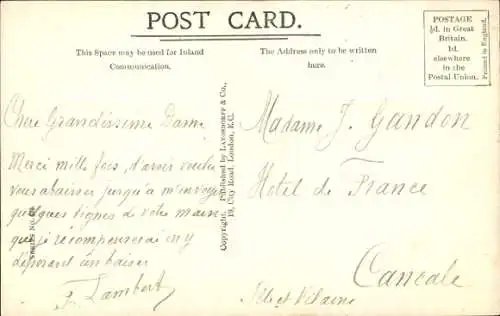 POST CARD.
This Space may be used for Inland
Communication.
The Address only to be written
here.
POSTAGE
½d. in Great
Britain.
1d.
elsewhere
in the
Postal Union.
Printed in England.
Chère Grandissime Dame
Merci mille fois, d'avoir voulu
vous abaisser jusqu'à m'envoyer
quelques lignes de votre main
que je récompenserai en y
déposant un baiser
F. Lambert
Copyright. Published by &  Co.,
19, City Road, London, E.C.
Madame J. Gandon
Hôtel de France
Cancale
Ille et Vilaine